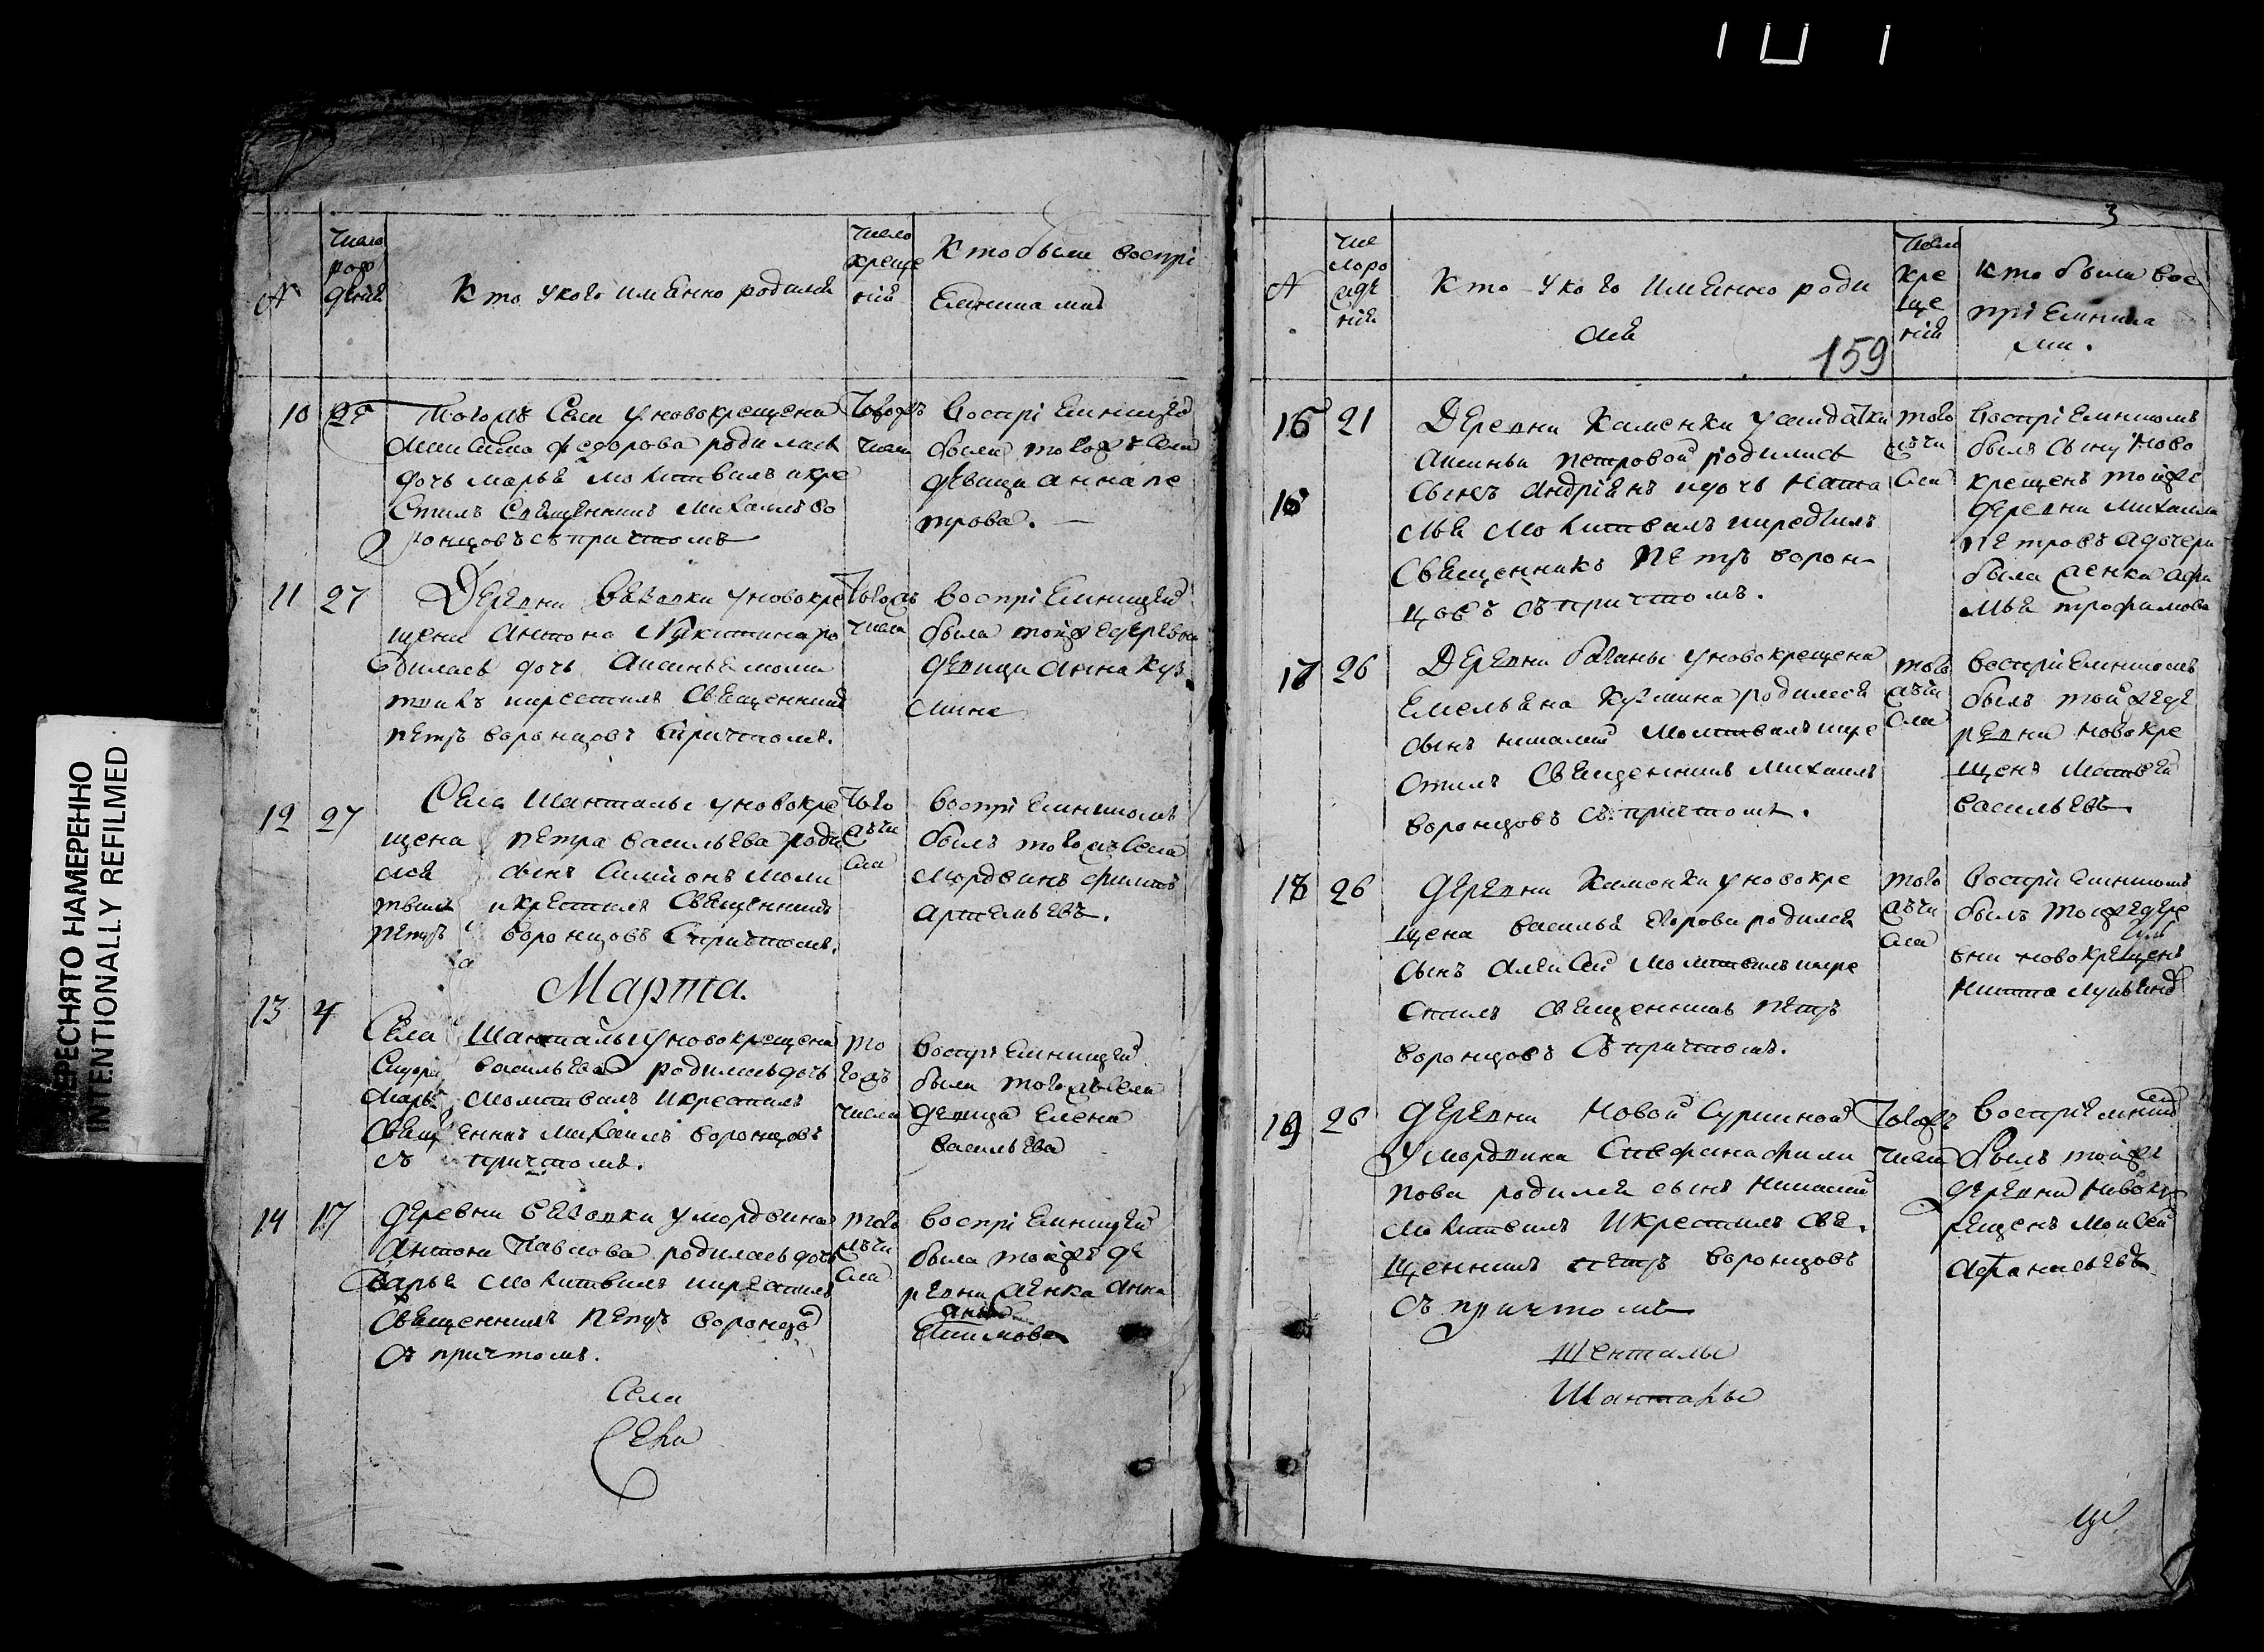 ПЕРЕСНЯТО НАМЕРЕННО
INTENTIONALLY REFILMED
№
Число рождения
Кто укого имянно родился
Число крещения
Кто были воспрiемниками
10 25
Тогожъ Села уновокрещена
Федорова родилась
дочь марья молитвилъ икре
стилъ Священникъ михаилъ во
ронцовъ съ причтомъ
Тогожъ
числа
воспрiемницей
была тогожъ Села
девица анна пе
трова.
11 27
Деревни уновокре
щена Антона Никитина ро
дилась дочь Аксинья моли
твилъ икрестилъ Священникъ
петръ воронцовъ спричтомъ.
Тогожъ
числа
воспрiемницей
была тойже деревни
девица анна куз
мина
12 27
Села Шанталы уновокре
щена петра васильева роди
лся сынъ Симионъ моли
твилъ икрестилъ Священникъ
петръ воронцовъ спричтомъ.
Того
жъ чи
сла
воспрiемникомъ
былъ тогожъ села
мордвинъ филипъ
артемьевъ.
Марта.
13 4
Села Шанталы уновокрещена
Сидора васильева родилась дочь
марья молитвилъ икрестилъ
Священникъ михаилъ воронцовъ
съ причтомъ.
То
гожъ
числа
воспрiемницей
была тогожъ села
девица Елена
васильева
14 17
деревни умордвина
Антона Павлова родилась дочь
дарья молитвилъ икрестилъ
Священникъ петръ воронцовъ
съ причтомъ.
того
жъ чи
сла
воспрiемницей
была тойже де
ревни женка анна
Села
Села
3
№
Число рождения
Кто укого имянно роди
лся
159
Число
кре
ще
нiя
Кто были вос
прiемника
ми.
15 21
Деревни Каменки усолдатки
аксиньи петровой родились
16
сынъ андрiянъ идочь ната
лья молитвилъ икрестилъ
Священникъ петръ ворон
цовъ съ причтомъ.
того
жъ чи
сла
воспрiемникомъ
былъ сыну ново
крещенъ тойже
деревни михаила
петровъ адочери
была женка
трофимова
17 26
Деревни уновокрещена
Емельяна Кузмина родился
сынъ николай молитвилъ икре
стилъ Священникъ михаилъ
воронцовъ съ причтомъ.
того
жъ чи
сла
воспрiемникомъ
былъ тойже де
ревни новокре
щенъ матвей
васильевъ.
18 26
деревни Каменки уновокре
щена василья егорова родился
сынъ алексей молитвилъ икре
стилъ священникъ петръ
воронцовъ съ причтомъ.
того
жъ чи
сла
воспрiемникомъ
былъ тойже дере
вни новокрещенъ
никита
19 26
деревни новой Суркиной
умордвина Стефана фили
пова родился сынъ николай
молитвилъ икрестилъ свя
щенникъ петръ воронцовъ
съ причтомъ
Тогожъ
числа
воспрiемникомъ
былъ тойже
деревни новокр
ещенъ моисей
афанасьевъ
Шенталы
Шанталы